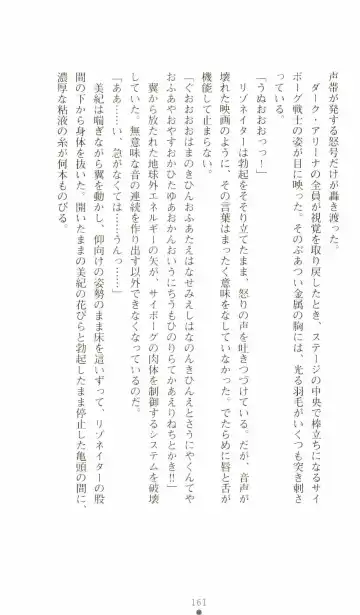 声帯が発する怒号だけが轟き渡った。
　ダーク・アリーナの全員が視覚を取り戻したとき、ステージの中央で棒立ちになるサイ
ボーグ戦士の姿が目に映った。そのぶあつい金属の胸には、光る羽毛がいくつも突き刺さ
っている。
「うぬおおおっっ！」
　リゾネイターは勃起をそそり立てたまま、怒りの声を吐きつづけている。だが、音声が
壊れた映画のように、その言葉はまったく意味をなしていなかった。でたらめに唇と舌が
機能して止まらない
「ぐおおおおはまのきひんおふあたえはなせみえしはなのんきひんえとさうにやくんてや
おふあやおやすおかひたゆあおかんおいうにちうもひのりらてかあえりねちとかき‼」
　翼から放たれた地球外エネルギーの矢が、サイボーグの肉体を制御するシステムを破壊
していた。無意味な音の連続を作り出す以外できなくなっているのだ。
「ああ……い、急がなくては……うんっ……」
　美紀は喘ぎながら翼を動かし、仰向けの姿勢のまま床を這いずって、リゾネイターの股
間の下から身体を抜いた。開いたままの美紀の花びらと勃起したまま停止した亀頭の間に、
濃厚な粘液の糸が何本ものびる。
161